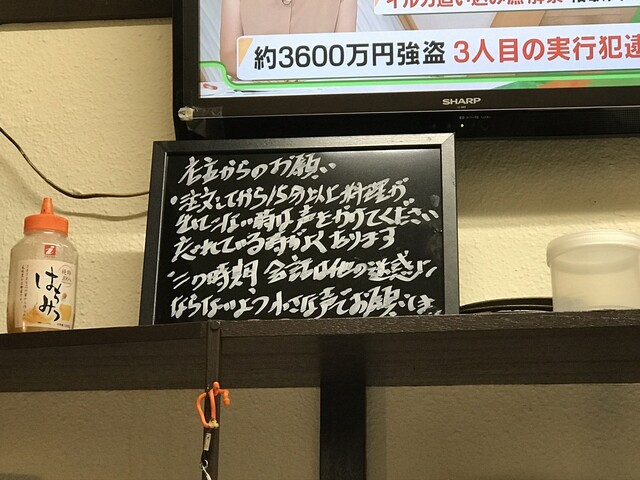 イルカ追い込み漁解禁
約3600万円強盗 3人目の実行犯逮
SHARP
老主からのお願い
・注文してから15分以上料理が
出てこない時は声をかけてください
忘れている時がよくあります
この時期 会話は他の迷惑に
ならないよう小さな声でお願いしま
はちみつ